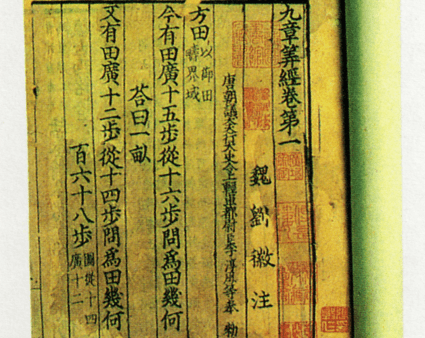 九章筭經卷第一
魏劉徽注
唐朝議大夫行太史令上輕車都尉臣李淳風等奉 勅
方田以御田疇界域
今有田廣十五步從十六步問爲田幾何
荅曰一畝
又有田廣十二步從十四步問爲田幾何
百六十八步圖從十四廣十二